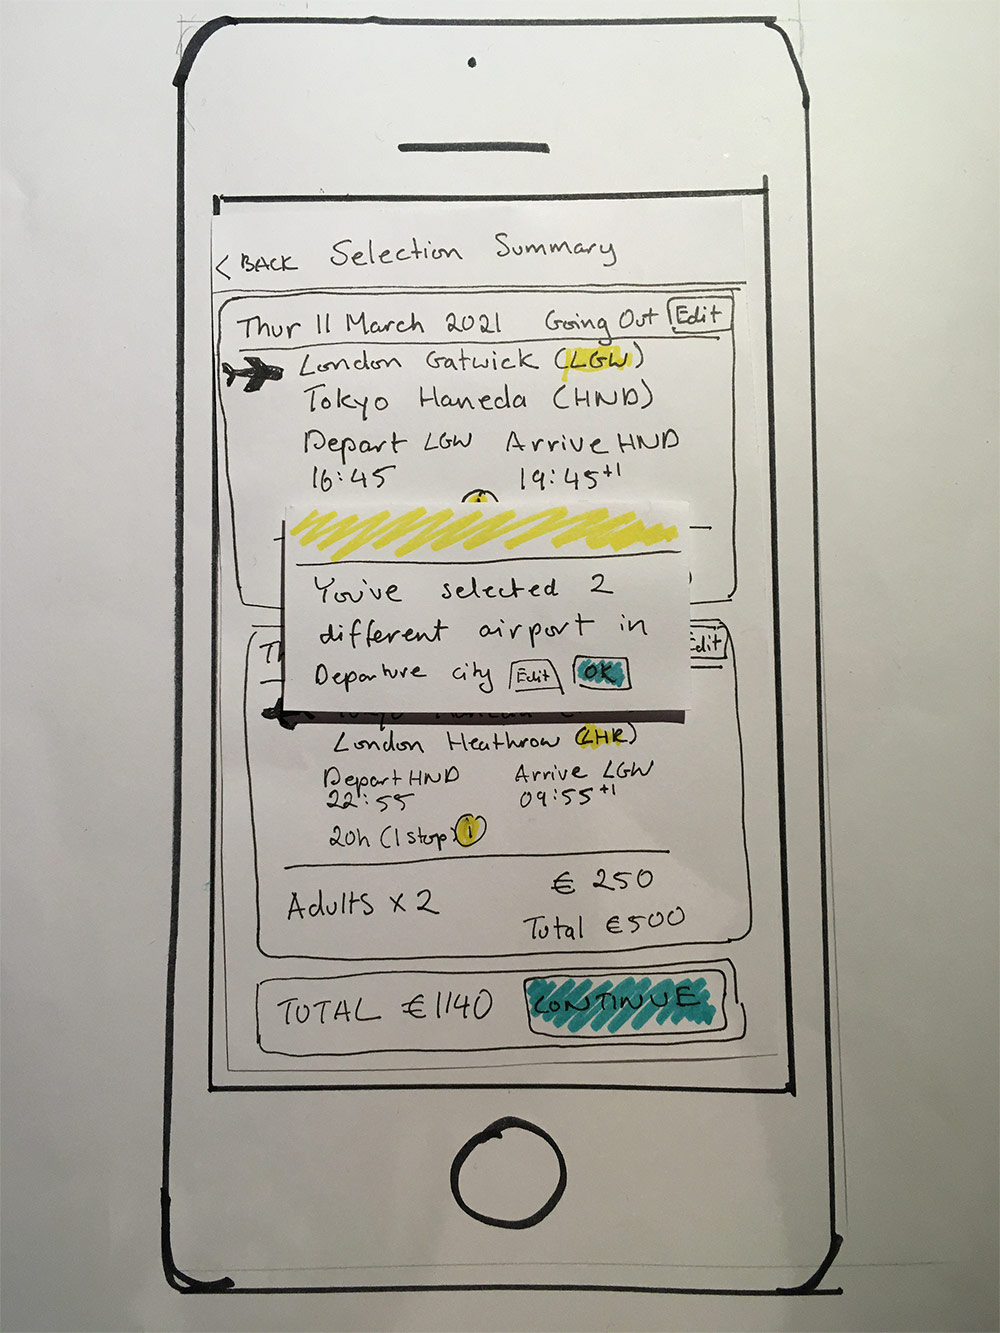 < BACK Selection Summary
Thur 11 March 2021 Going Out Edit
London Gatwick (LGW)
Tokyo Haneda (HND)
Depart LGW Arrive HND
16:45 19:45+1
You've selected 2
different airport in
Departure city Edit OK
Edit
London Heathrow (LHR)
Depart HND Arrive LGW
22:55 09:55+1
20h (1 stop) i
Adults x 2 € 250
Total €500
TOTAL €1140 CONTINUE